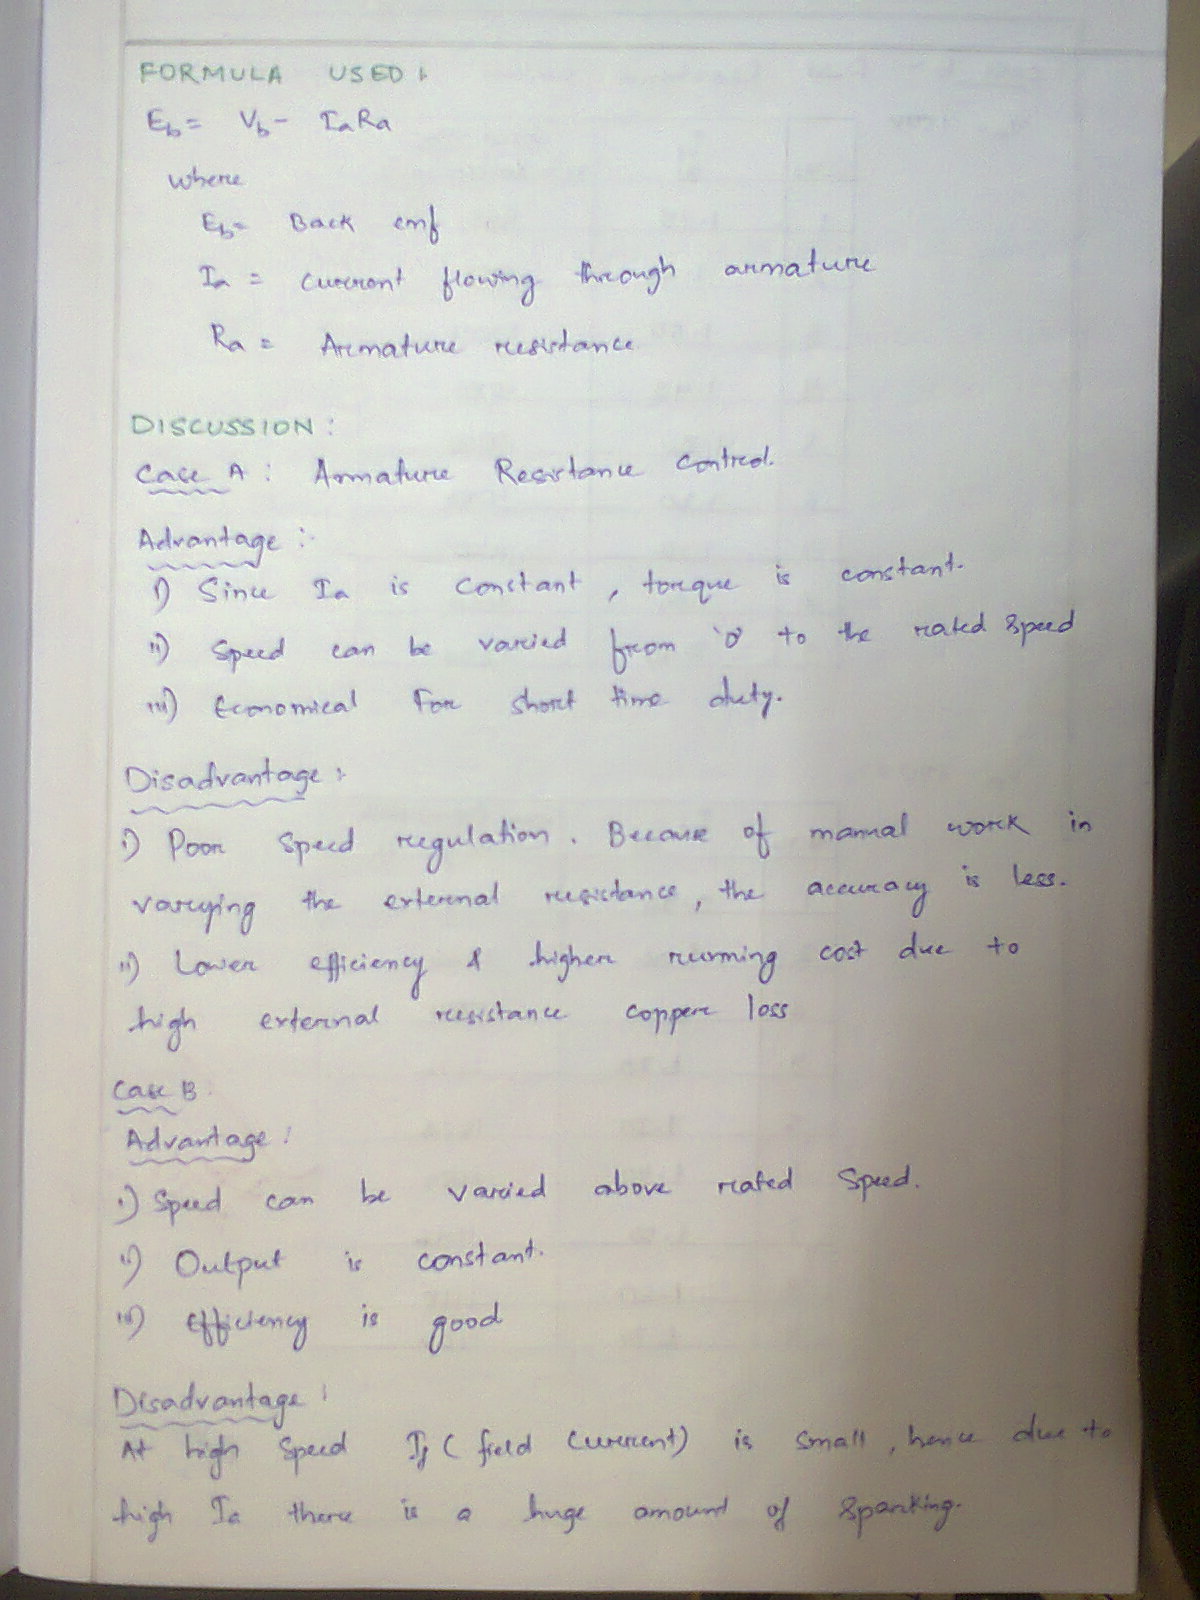 FORMULA USED :
Eb = Vb - IaRa
where
Eb = Back emf
Ia = current flowing through armature
Ra = Armature resistance
DISCUSSION :
Case A : Armature Resistance Control.
Advantage :-
i) Since Ia is constant, torque is constant.
ii) Speed can be varied from '0' to the rated speed
iii) Economical For short time duty.
Disadvantage :
i) Poor speed regulation. Because of manual work in
varying the external resistance, the accuracy is less.
ii) Lower efficiency & higher running cost due to
high external resistance copper loss
Case B
Advantage :
i) Speed can be varied above rated Speed.
ii) Output is constant.
iii) Efficiency is good
Disadvantage :
At high Speed If ( field current) is small, hence due to
high Ia there is a huge amount of sparking.